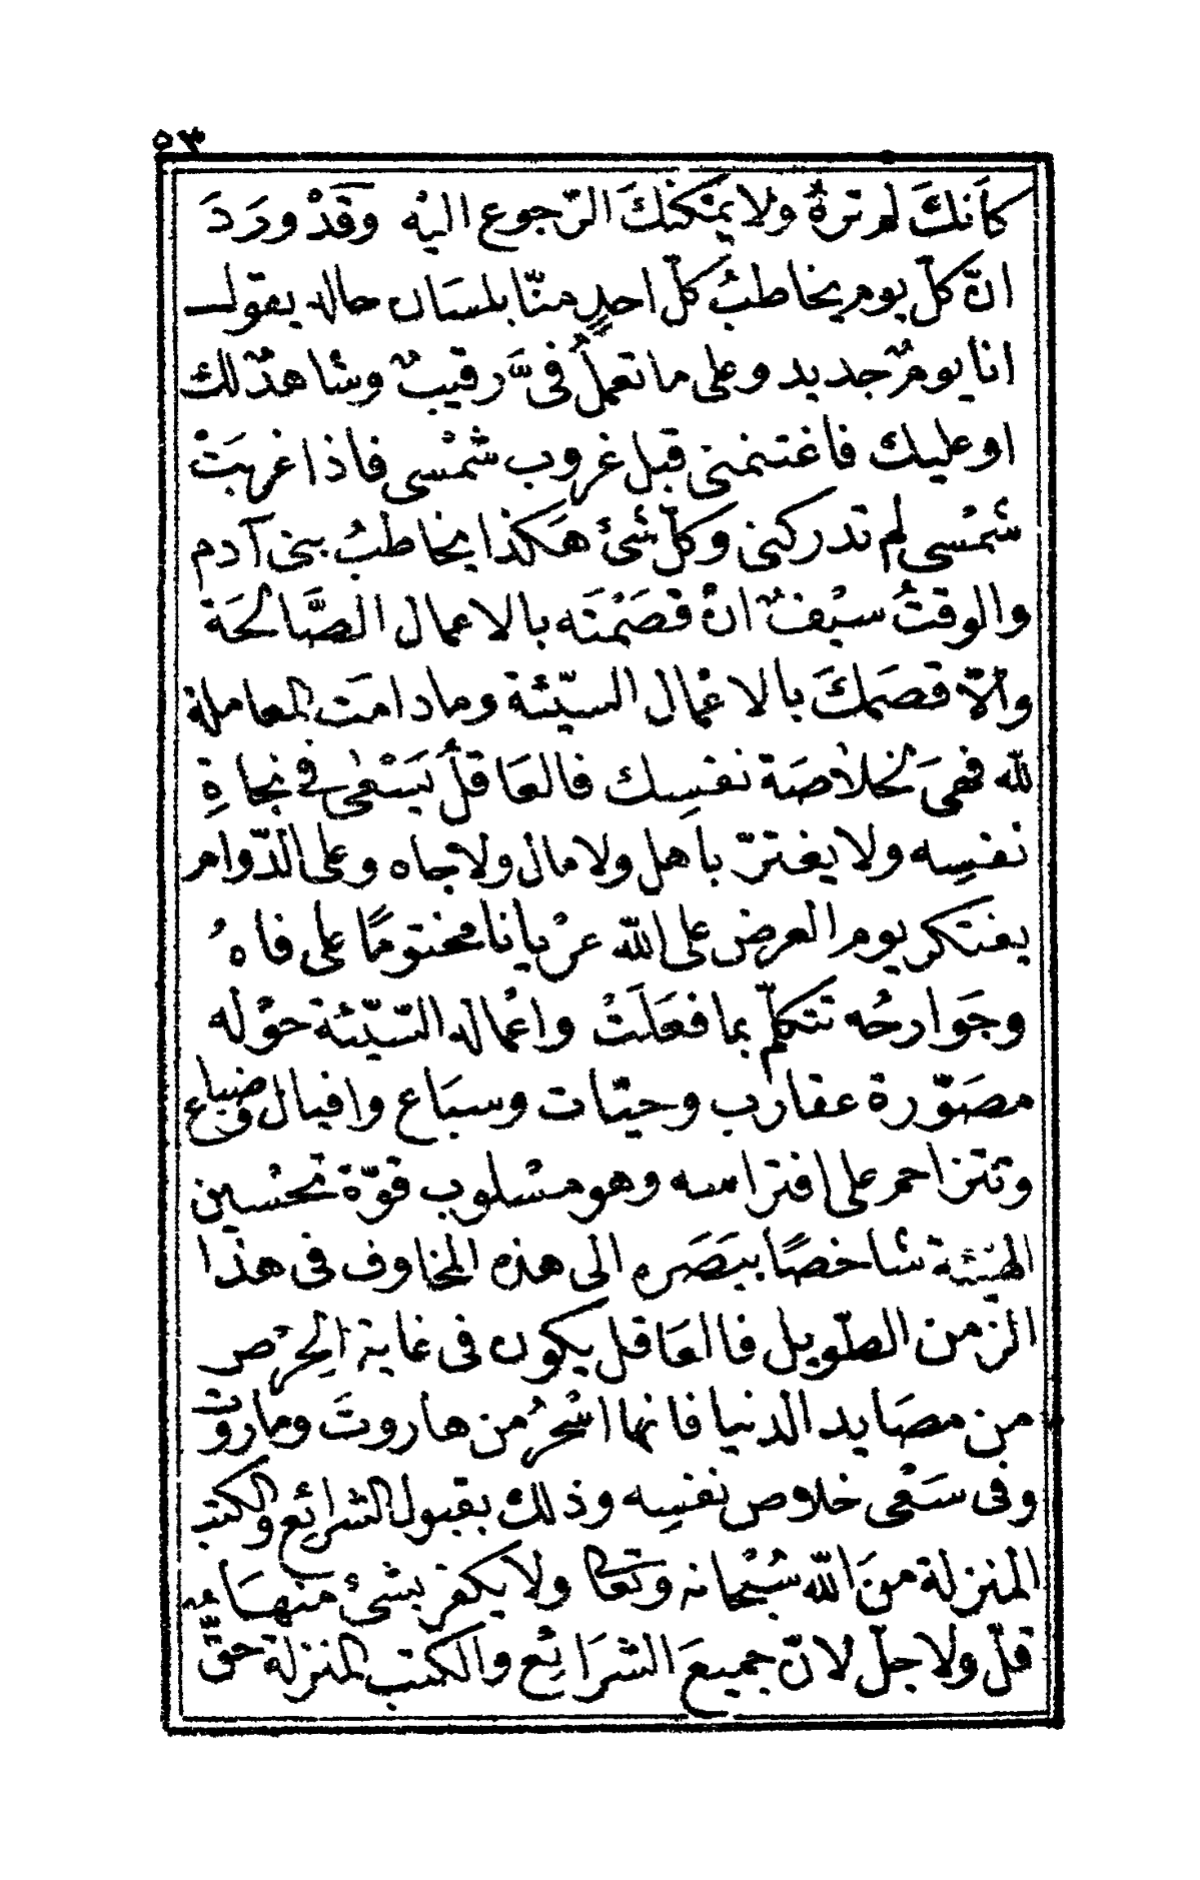 ٥٣
كأنك لم تره ولا يمكنك الرّجوع اليه وقد ورد
انّ كلّ يوم يخاطب كلّ احدٍ منّا بلسان حاله يقول
انا يومٌ جديد وعلى ما تعملُ فىَّ رقيبٌ وشاهدٌ لك
او عليك فاغتنمنى قبل غروب شمسى فاذا غربتْ
شمسى لم تدركنى وكلّ شئ هكذا يخاطبُ بنى آدم
والوقتُ سيفٌ انْ قصَمْتَه بالاعمال الصّالحَة
والاّ قصَمكَ بالاعْمال السيّئة ومادامَت المعاملة
لله فهىَ لخلاصَة نفسِك فالعَاقلُ يَسْعٰى فى نجاةِ
نفسِه ولا يغترّ باهل ولا مال ولا جاه وعلى الدّوام
يفتكر يوم العرض على الله عرْيانا مختومًا على فاهُ
وجَوارحُه تتكلّم بما فعَلَتْ واعْماله السّيّئة حوْله
مصَوّرة عقارب وحيّات وسبَاع وافيال وضباع
وتتزاحم على افتراسه وهو مسْلوب قوّة تحْسين
الهيْئة شاخصًا ببَصَره الى هذه المخاوف فى هذا
الزمن الطّويل فالعَاقل يكون فى غاية الحرْص
من مصَايد الدنيا فانها اسْحرُ من هاروتَ وماروت
وفى سَعْى خلاص نفسِه وذلك بقبول الشرائع والكتب
المنزلة منَ الله سُبْحانه وتعالى ولا يكفر بشئ منهَا
قلّ ولا جلّ لانّ جميعَ الشرَائع والكتب المنزلة حقٌّ